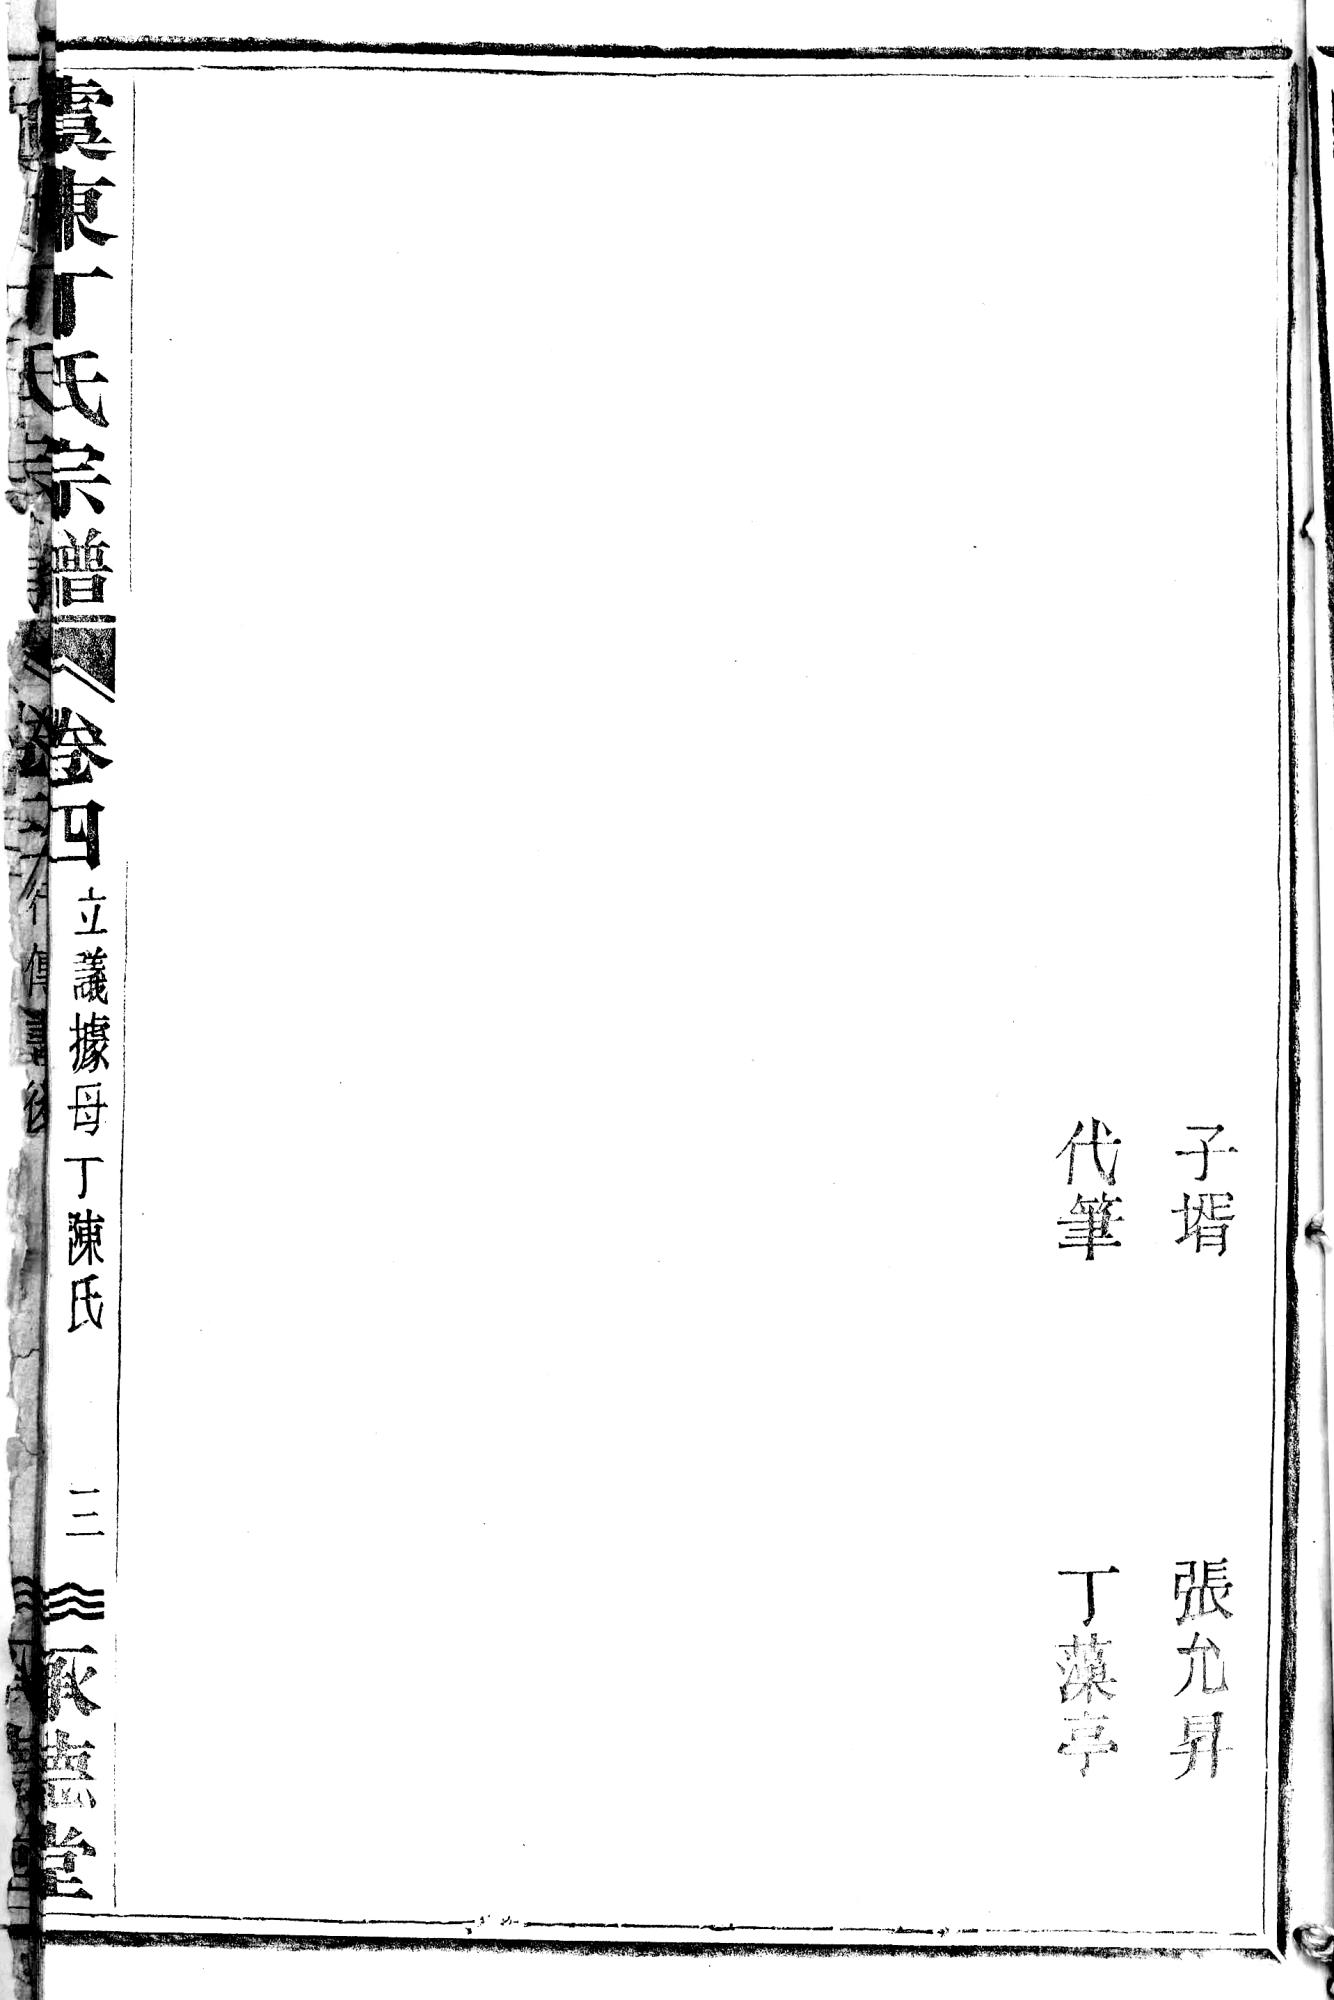 子壻　張允昇
代筆　丁藻亭
虞東丁氏宗譜　卷四　立議據母丁陳氏　三　承德堂